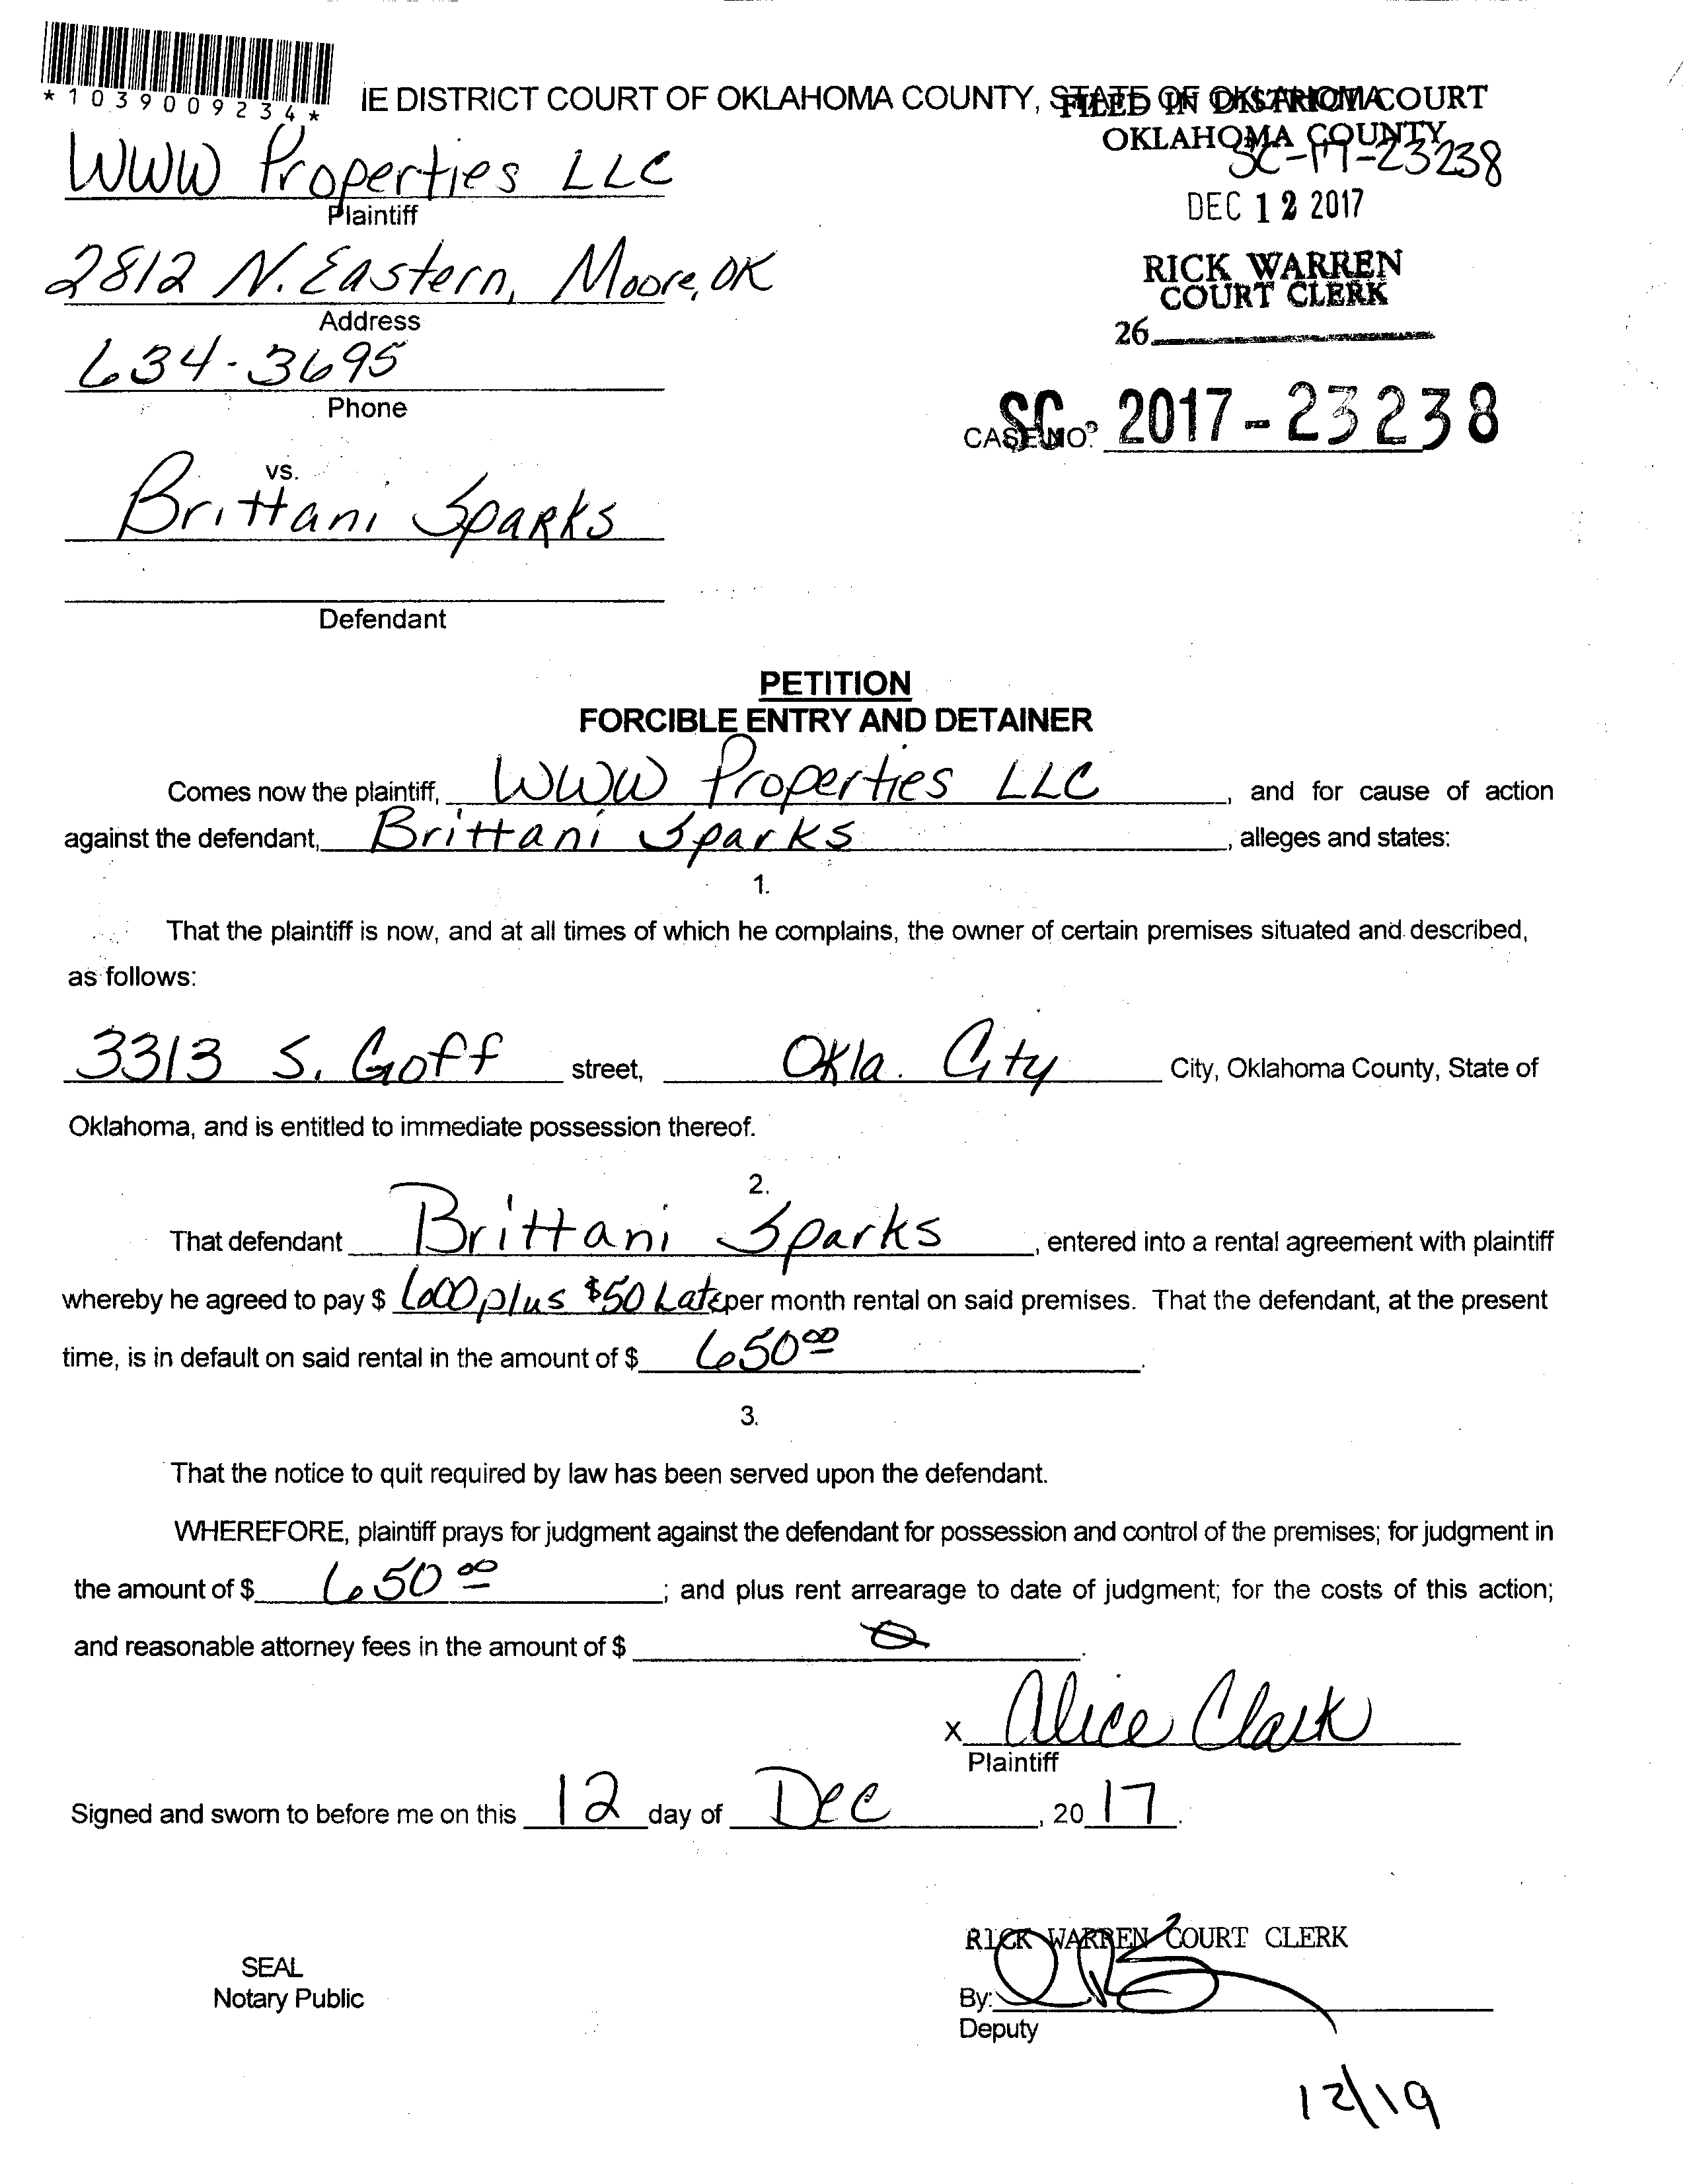 *1039009234*
IE DISTRICT COURT OF OKLAHOMA COUNTY, STATE OF OKLAHOMA
FILED IN DISTRICT COURT
OKLAHOMA COUNTY
SC-17-23238
WWW Properties LLC
Plaintiff
DEC 12 2017
2812 N. Eastern, Moore, OK
Address
RICK WARREN
COURT CLERK
26
634-3695
Phone
CASE NO.
SC 2017-23238
vs.
Brittani Sparks
Defendant
PETITION
FORCIBLE ENTRY AND DETAINER
Comes now the plaintiff, WWW Properties LLC, and for cause of action
against the defendant, Brittani Sparks, alleges and states:
1.
That the plaintiff is now, and at all times of which he complains, the owner of certain premises situated and described,
as follows:
3313 S. Goff street, Okla. City City, Oklahoma County, State of
Oklahoma, and is entitled to immediate possession thereof.
2.
That defendant Brittani Sparks, entered into a rental agreement with plaintiff
whereby he agreed to pay $ 600 plus $50 Late per month rental on said premises. That the defendant, at the present
time, is in default on said rental in the amount of $ 650 00.
3.
That the notice to quit required by law has been served upon the defendant.
WHEREFORE, plaintiff prays for judgment against the defendant for possession and control of the premises; for judgment in
the amount of $ 650 00; and plus rent arrearage to date of judgment; for the costs of this action;
and reasonable attorney fees in the amount of $ 0.
X Alice Clark
Plaintiff
Signed and sworn to before me on this 12 day of Dec, 20 17.
RICK WARREN COURT CLERK
SEAL
Notary Public
By:
Deputy
12/19